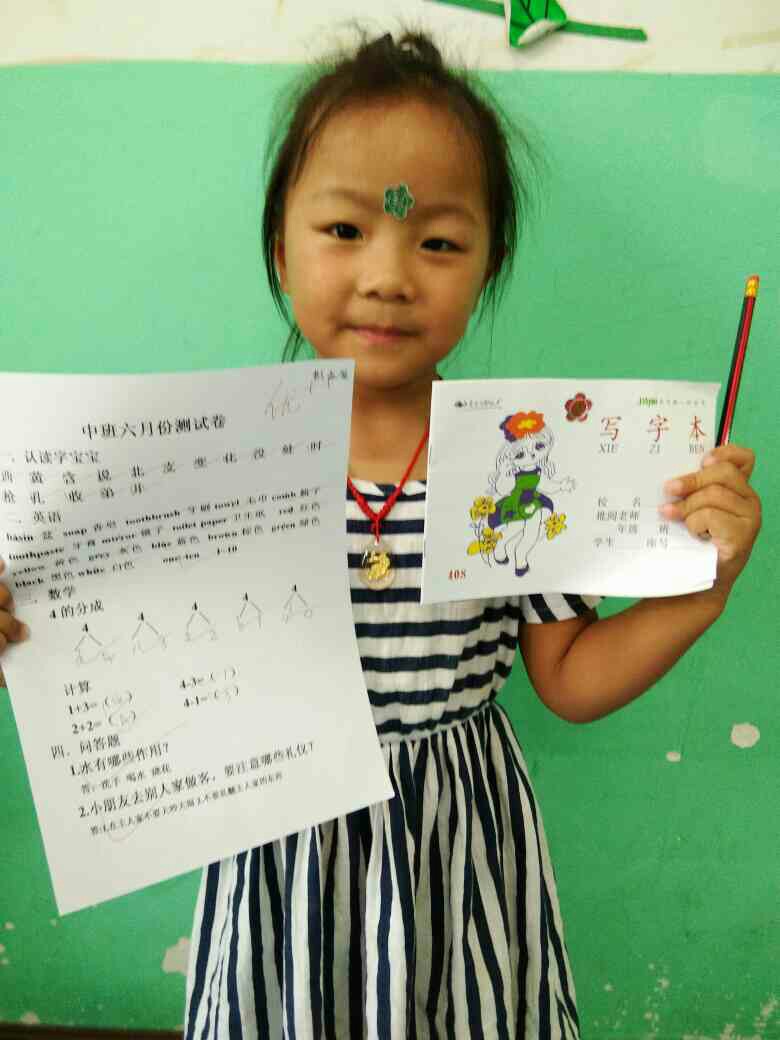 优
中班六月份测试卷
一、认读字宝宝
西 黄 含 说 北 支 变 化 没 射 时
枪 孔 收 弟 井
二 英语
basin 盆 soap 香皂 toothbrush 牙刷 towel 毛巾 comb 梳子
toothpaste 牙膏 mirror 镜子 toilet paper 卫生纸 red 红色
yellow 黄色 grey 灰色 blue 蓝色 brown 棕色 green 绿色
black 黑色 white 白色 one-ten 1-10
三 数学
4 的分成
4 4 4 4 4
计算
1+3=(4) 4-3=(1)
2+2=(4) 4-1=(3)
四、问答题
1.水有哪些作用?
答:洗手 喝水 浇花
2.小朋友去别人家做客,要注意哪些礼仪?
写 字 本
XIE ZI BEN
校 名
推阅老师
年级 班
学生 座号
408